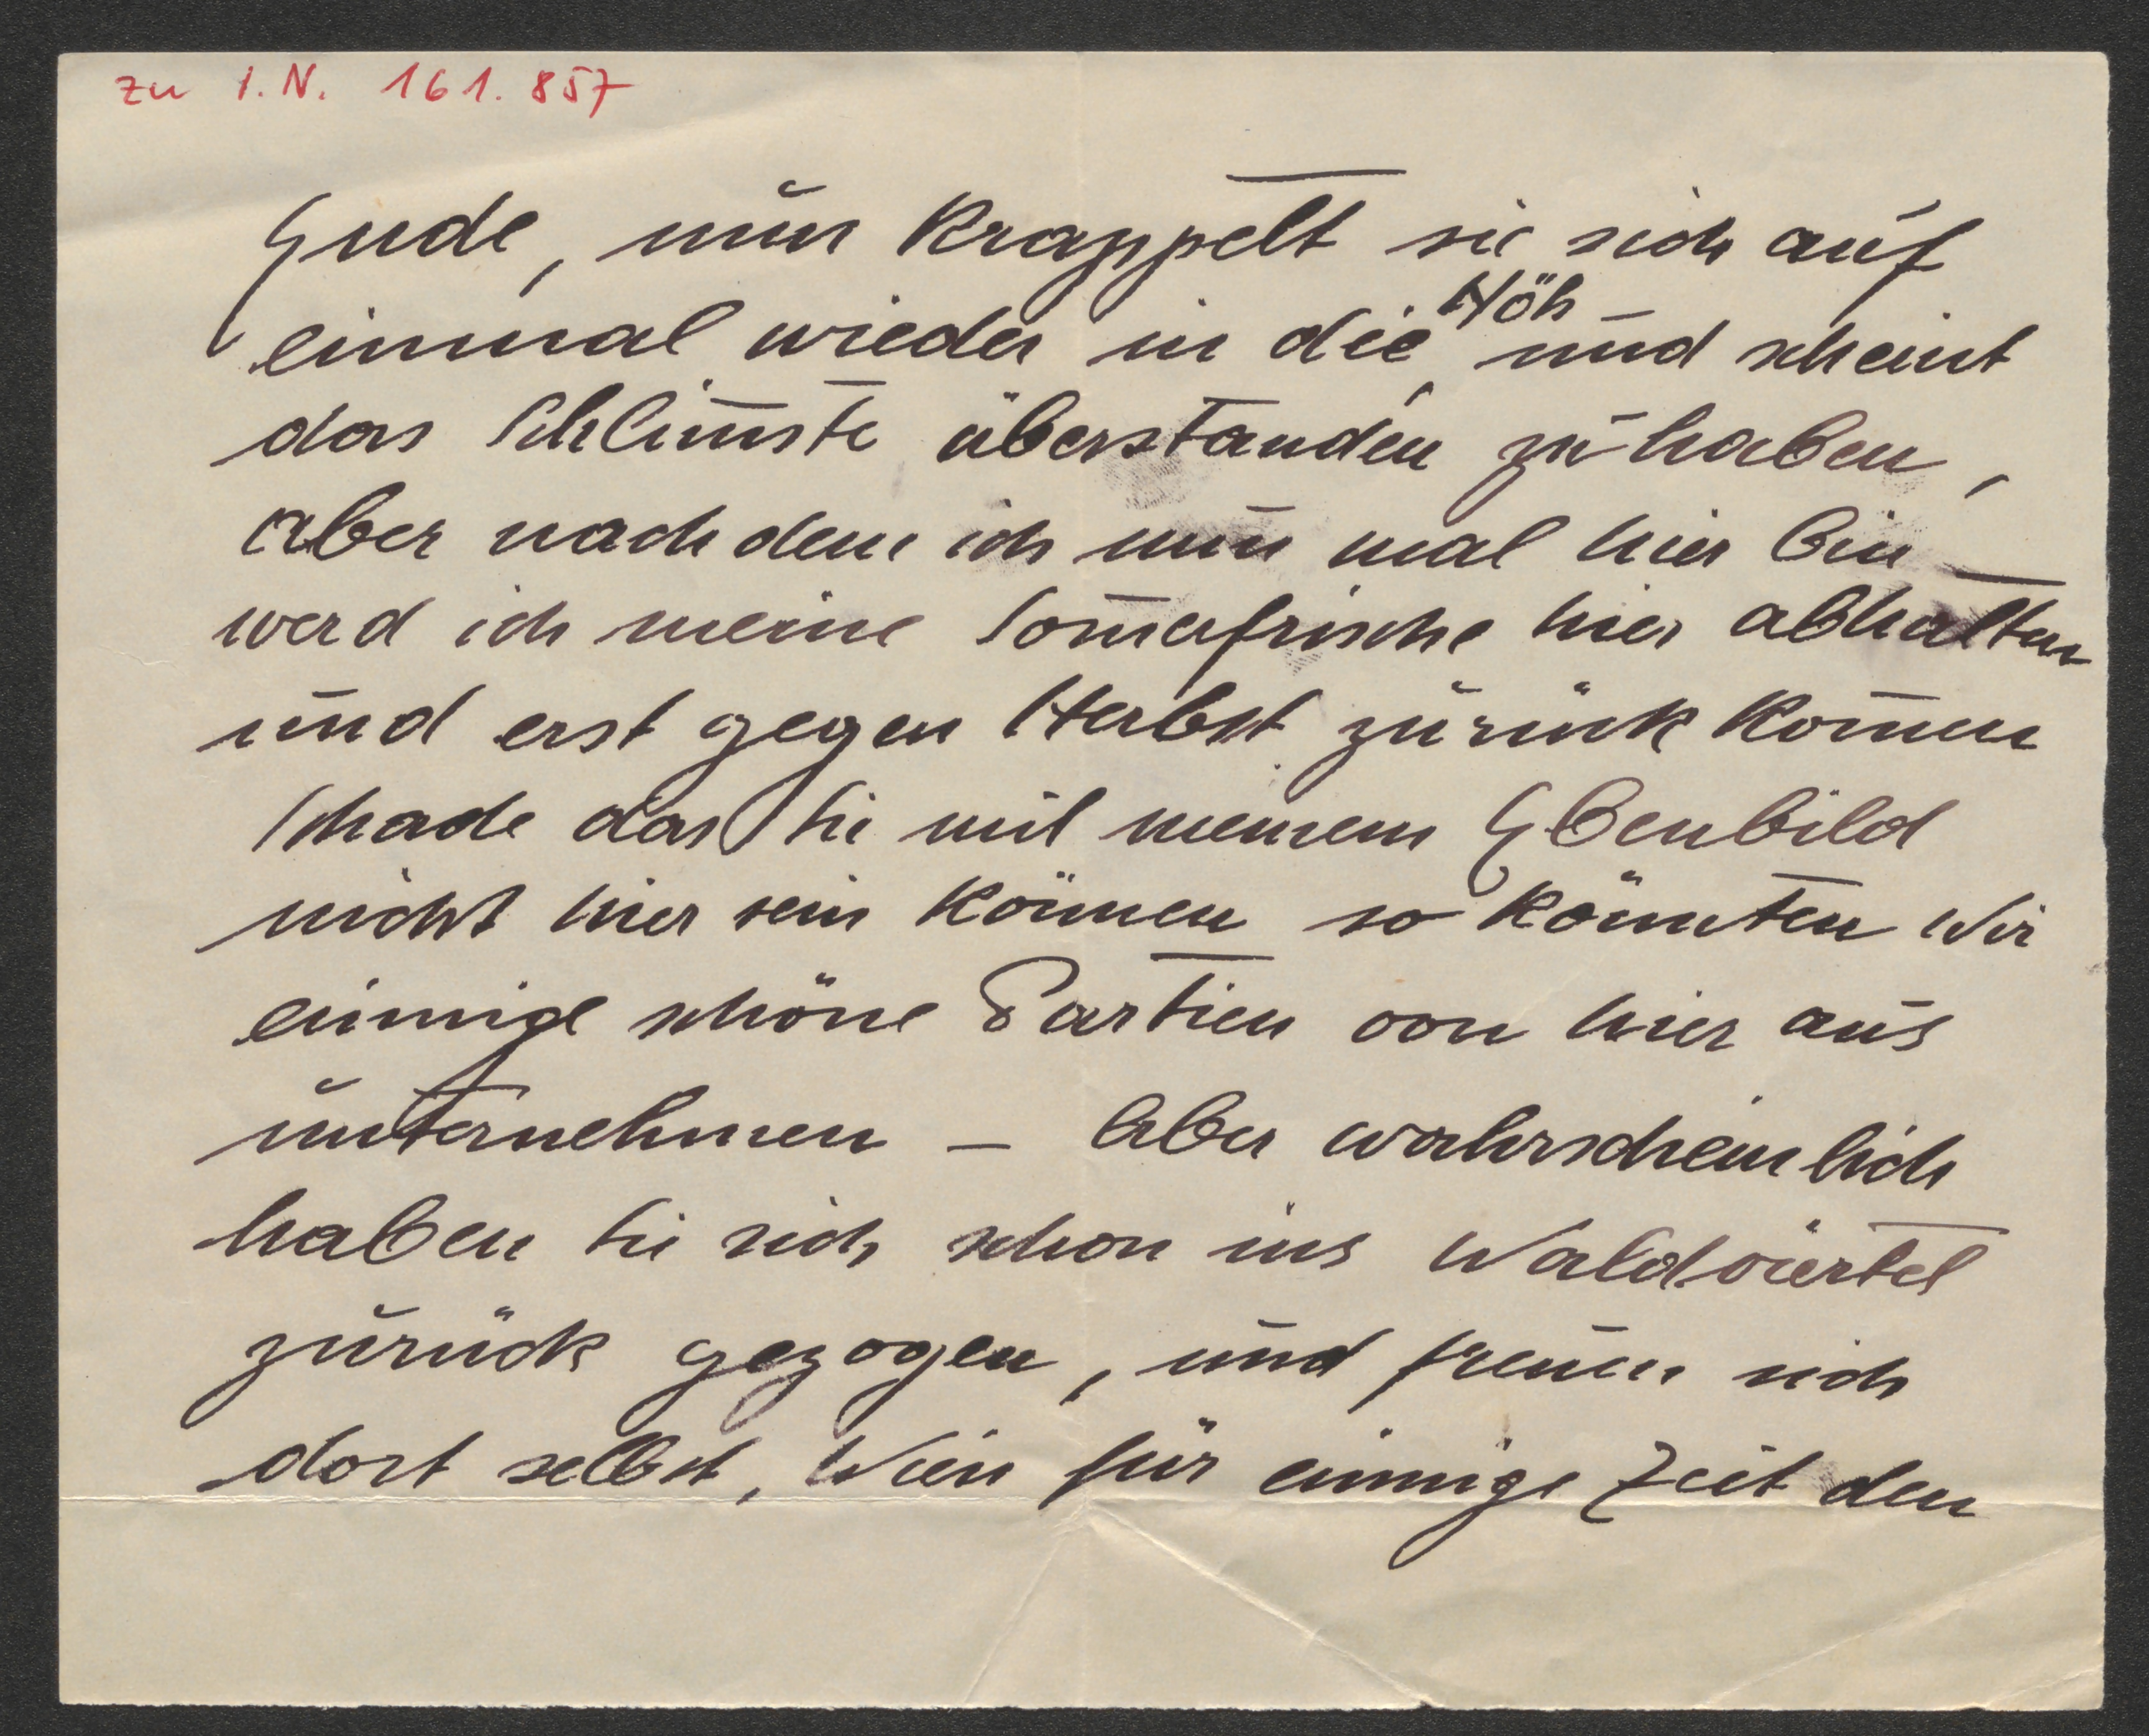 zu I.N. 161.857
Ende, nun krappelt sie sich auf
einmal wieder in die Höh und scheint
das Schlim̄ste überstanden zu haben,
aber nach dem ich nun mal hier bin
werd ich meine Som̄erfrische hier abhalten
und erst gegen Herbst zurück kom̄en
Schade das Sie mit meinem Ebenbild
nicht hier sein können so könnten Wir
einnige schöne Partien von hier aus
unternehmen – Aber wahrscheinlich
haben Sie sich schon ins Waldviertel
zurück gezogen, und freuen sich
dort selbst, Wien für einnige Zeit den